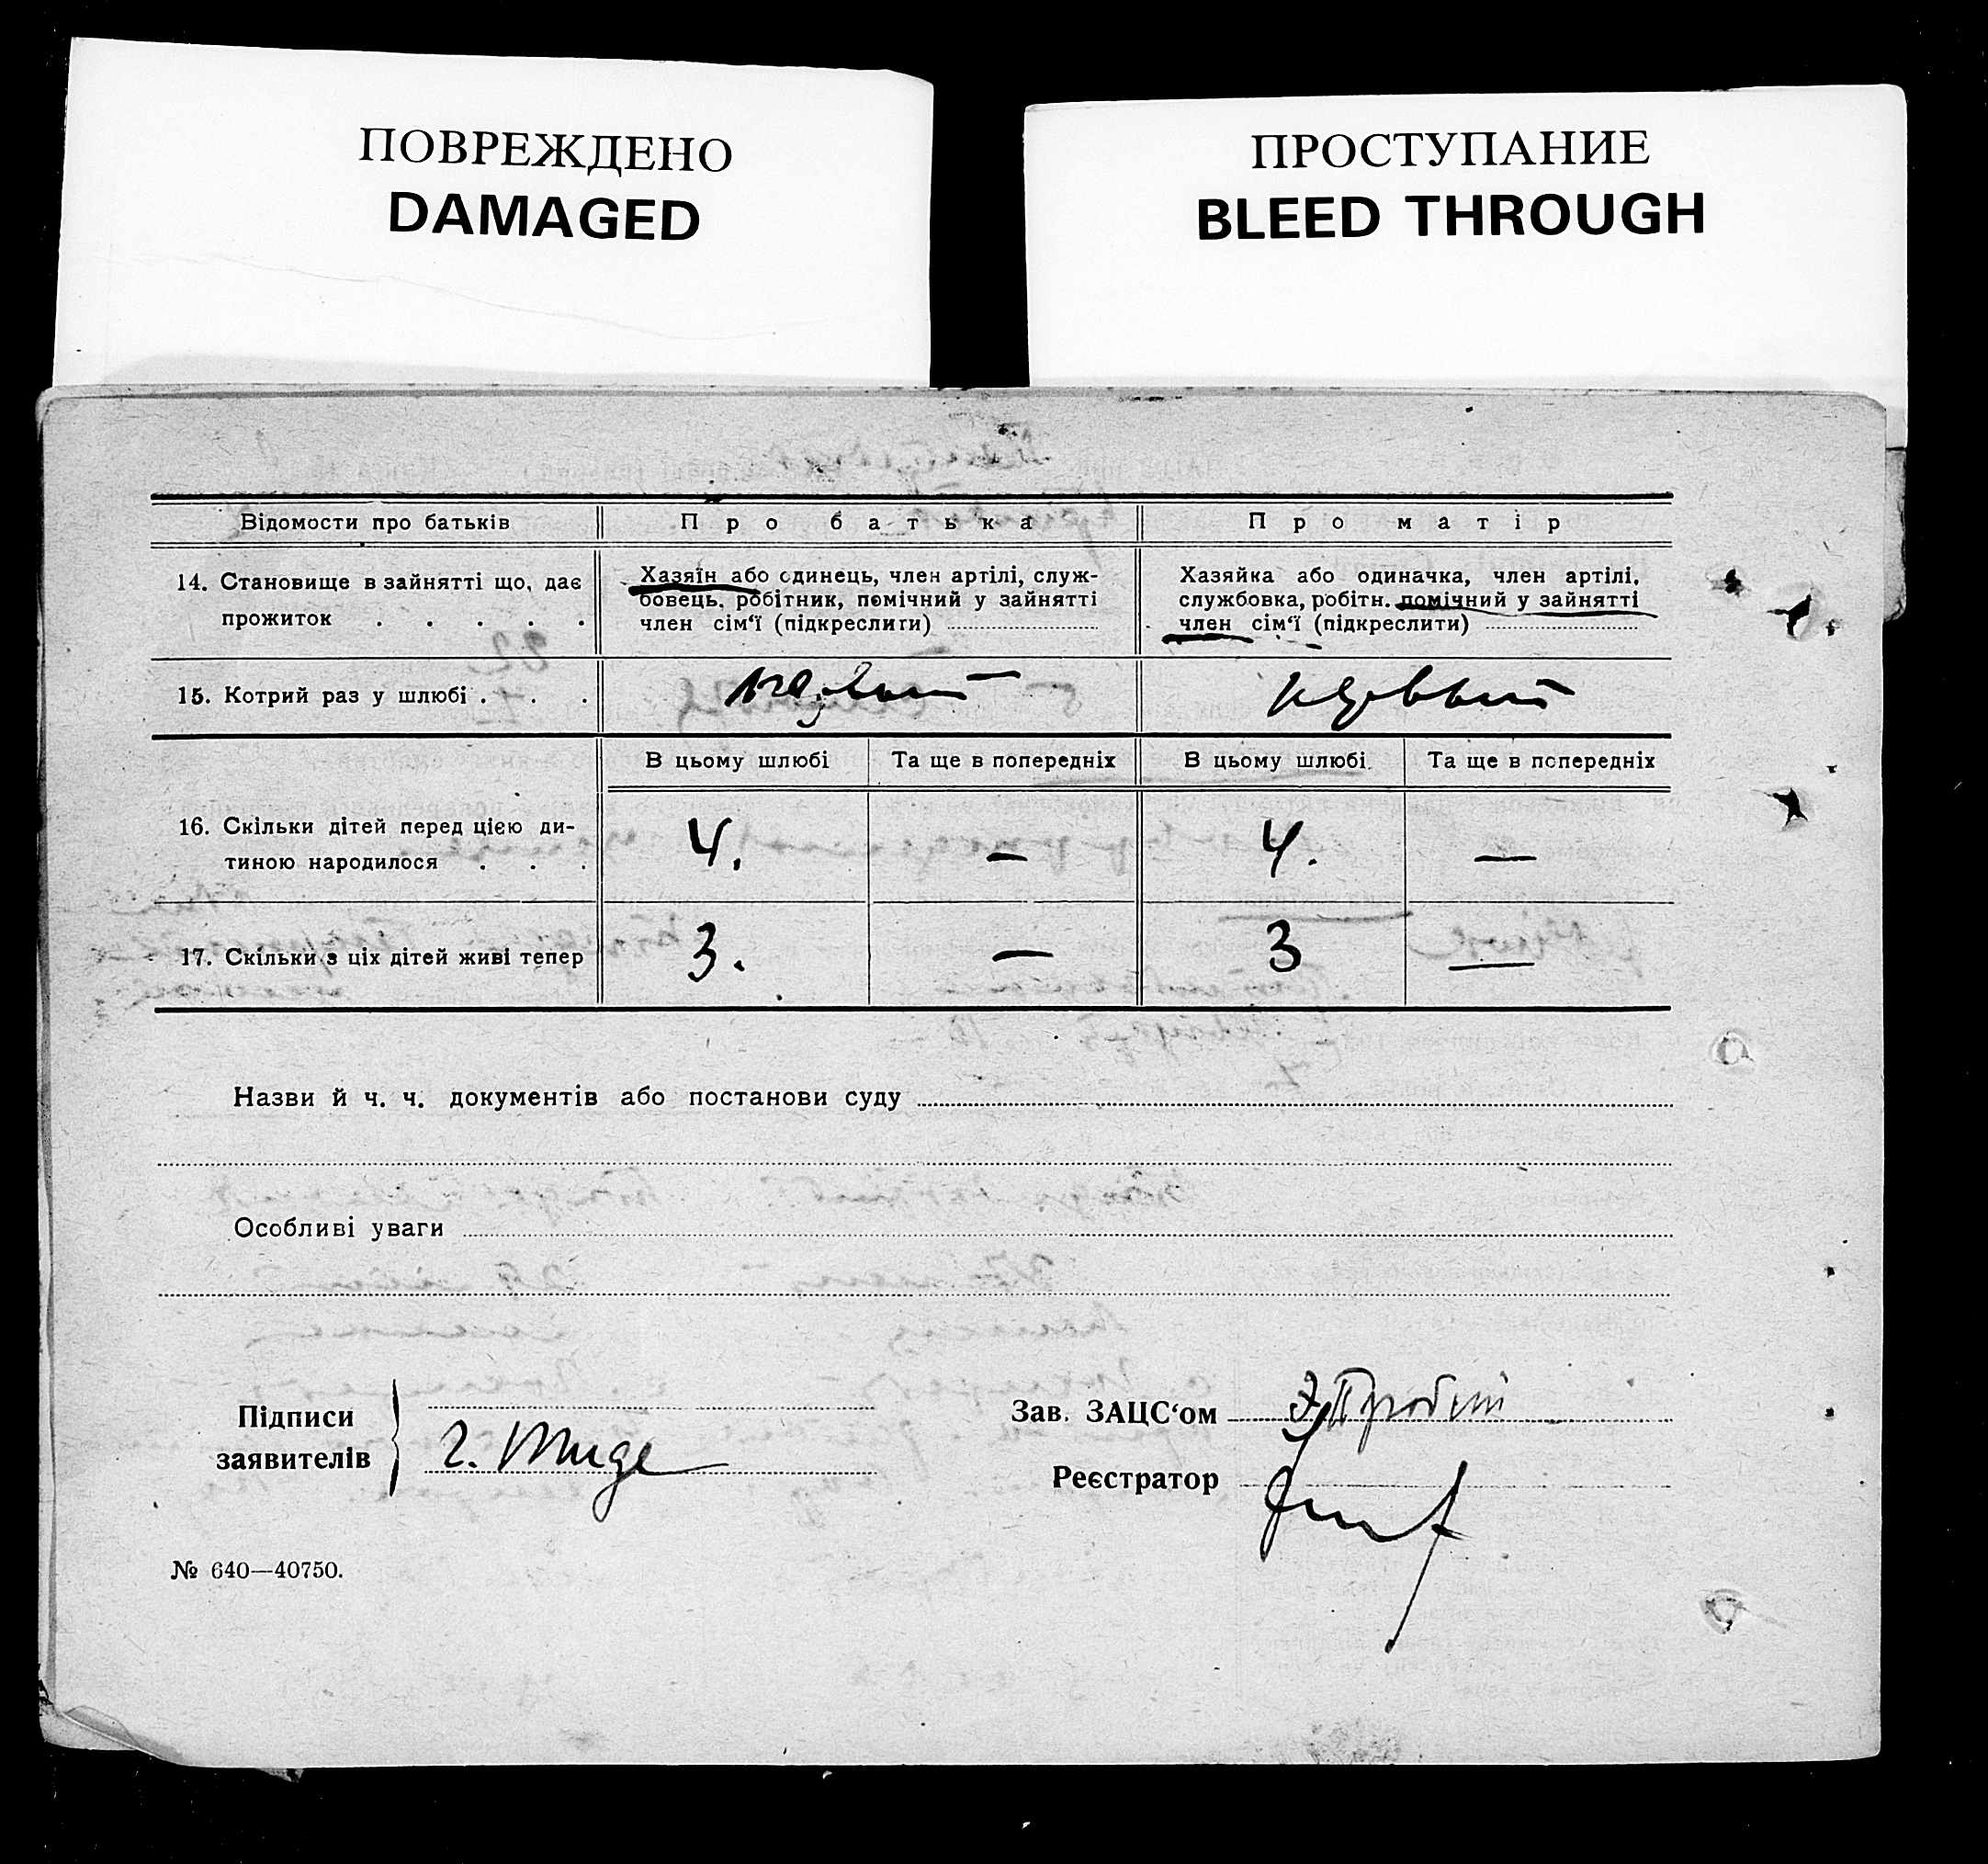 ПОВРЕЖДЕНО
DAMAGED
ПРОСТУПАНИЕ
BLEED THROUGH
Відомости про батьків
Про батька
Про матір
14. Становище в зайнятті що, дає
прожиток . . . . .
Хазяїн або одинець, член артілі, служ-
бовець, робітник, помічний у зайнятті
член сім‘ї (підкреслити)
Хазяйка або одиначка, член артілі,
службовка, робітн. помічний у зайнятті
член сім‘ї (підкреслити)
15. Котрий раз у шлюбі . . .
первый
первый
В цьому шлюбі
Та ще в попередніх
В цьому шлюбі
Та ще в попередніх
16. Скільки дітей перед цією ди-
тиною народилося . . .
4.
—
4.
—
17. Скільки з ціх дітей живі тепер
3.
—
3
—
Назви й ч. ч. документів або постанови суду
Особливі уваги
Підписи
заявителів
Зав. ЗАЦС‘ом
Реєстратор
№ 640—40750.